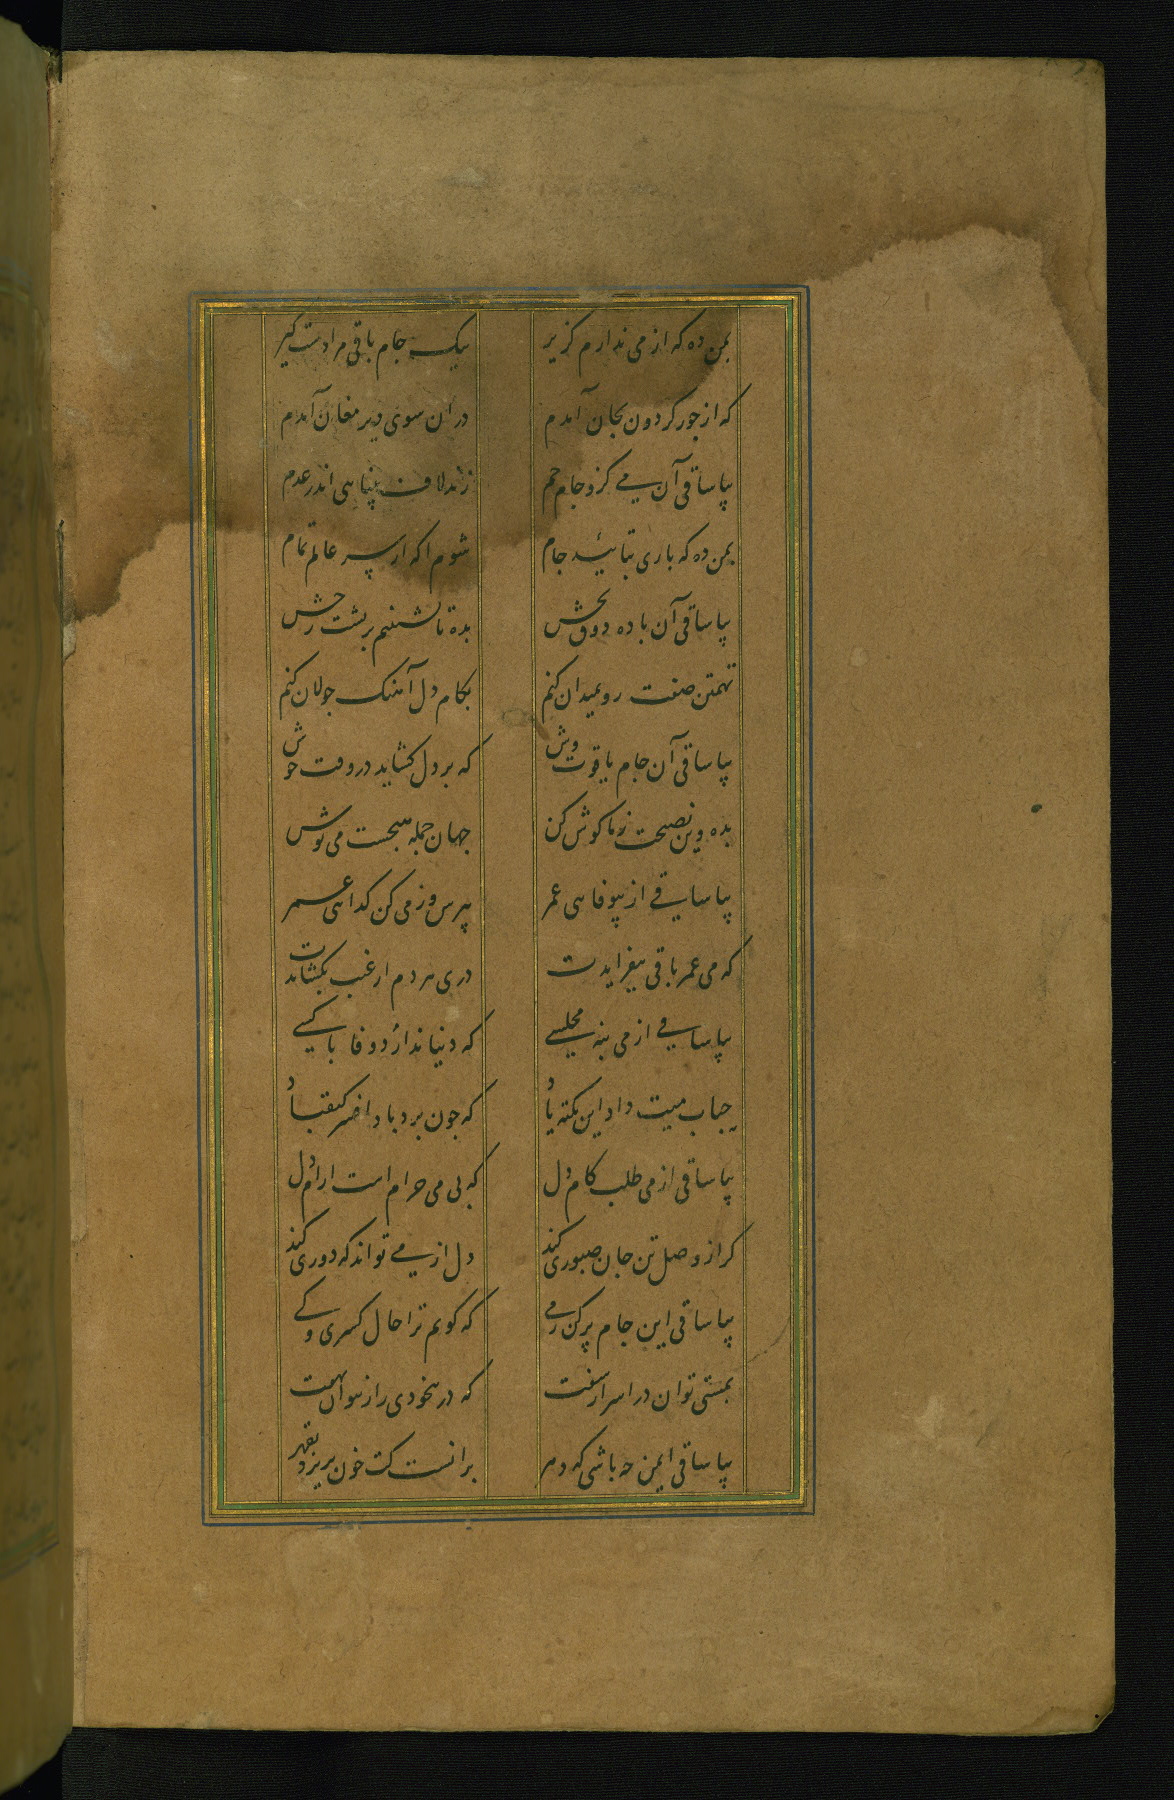 بمن ده که از می ندارم کزیر یک جام باقی مرا دست کیر
که از جور کردون بجان آمدم دران سوی دیر مغان آمدم
بیا ساقی آن می کزو جام جم زند لاف بینایی اندر عدم
بمن ده که باری بتایید جام شوم اکه از سر عالم تمام
بیا ساقی آن باده ذوق بخش بده تا نشینم بر پشت رخش
تهمتن صفت رو بمیدان کنم بکام دل آهنک جولان کنم
بیا ساقی آن جام یاقوت وش که بر دل کشاید در وقت خوش
بده وین نصیحت ز ما کوش کن جهان جمله هیچست می نوش
بیا ساقی از بیوفایی عمر بپرس وز می کن کدایی عمر
که می عمر باقی بیفزایدت دری هر دم از غیب بکشایدت
بیا ساقی از می بنه مجلسی که دنیا ندارد وفا با کسی
حباب میت داد این نکته یاد که جون برد باد افسر کیقباد
بیا ساقی از می طلب کام دل که بی می حرام است ارام دل
کر از وصل تن جان صبوری کند دل از می تواند که دوری کند
بیا ساقی این جام پر کن ز می که کویم ترا حال کسری و کی
بمستی توان در اسرار سفت که در بیخودی راز نتوان نهفت
بیا ساقی ایمن جه باشی که دهر برانست کت خون بریزد بقهر